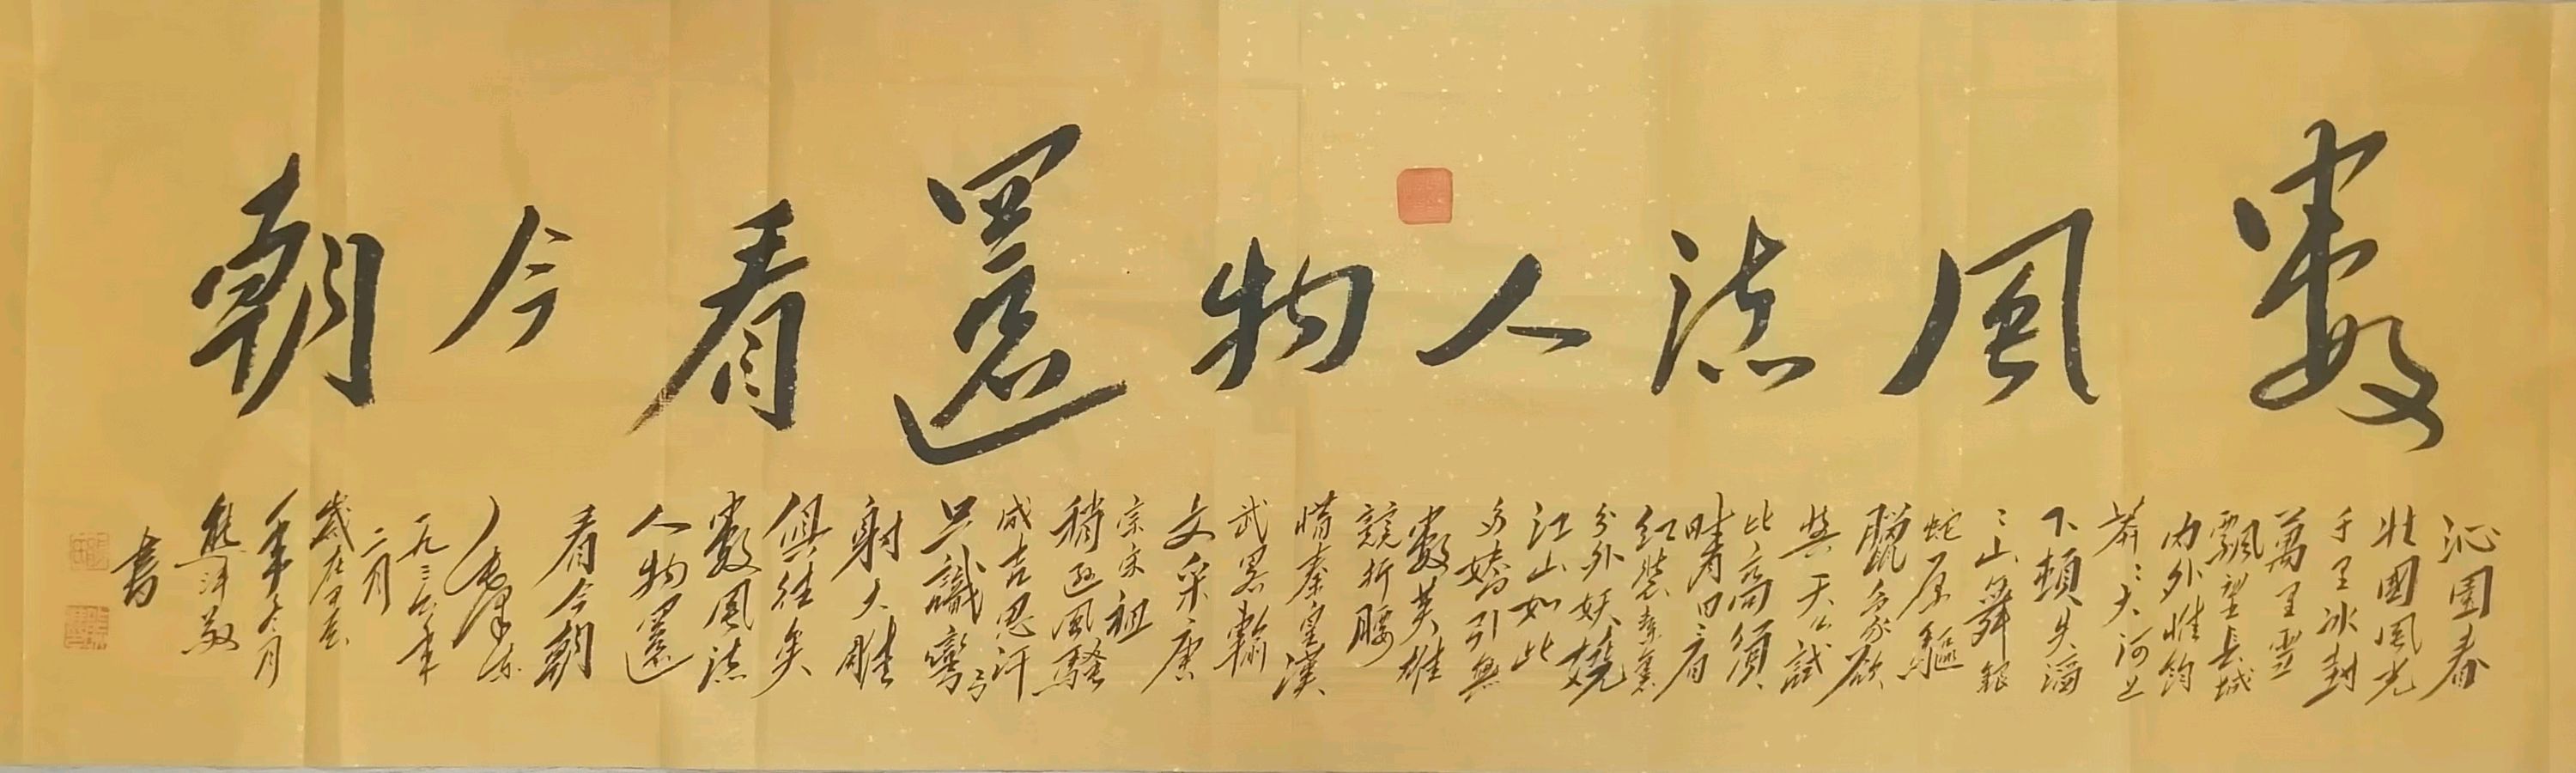 數風流人物還看今朝
沁園春
北國風光
千里冰封
萬里雪
飄望長城
內外惟餘
莽〻大河上
下頓失滔
〻山舞銀
蛇原驅
臘象欲
與天公試
比高須
晴日看
紅裝素裹
分外妖嬈
江山如此
多嬌引無
數英雄
競折腰
惜秦皇漢
武畧輸
文采唐
宗宋祖
稍遜風騷
成吉思汗
只識彎弓
射大雕
俱往矣
數風流
人物還
看今朝
毛澤東
一九三六年
二月
歲在
年冬月
書